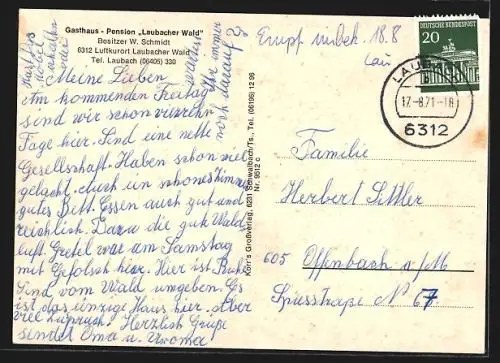 Gasthaus - Pension „Laubacher Wald"
Besitzer W. Schmidt
6312 Luftkurort Laubacher Wald
Tel. Laubach (06405) 330
Meine Lieben
Am kommenden Freitag
sind wir schon vierzehn
Tage hier. Sind eine nette
Gesellschaft. Haben schon viel
gelacht. Auch ein schönes Zimmer
gutes Bett. Essen auch gut und
reichlich. Dazu die gute Wald
luft. Gretel war am Samstag
mit Gefolsch hier. Hier ist Ruhe
Sind vom Wald umgeben. Es
ist das einzige Haus hier. Aber
viel Zuspruch. Herzlich Grüße
sendet Oma u. Uroma
Ihr immer
noch darauf
Karte
erhalten
oder
wartet
Korr's Großverlag, 6231 Schwalbach/Ts., Tel. (06196) 12 96
Nr. 9812 c
Empf unbek. 18.8
DEUTSCHE BUNDESPOST
20
LAUBACH
17.-8.71.-18
6312
Familie
Herbert Sittler
605 Offenbach a/M
Spiesstraße N 67